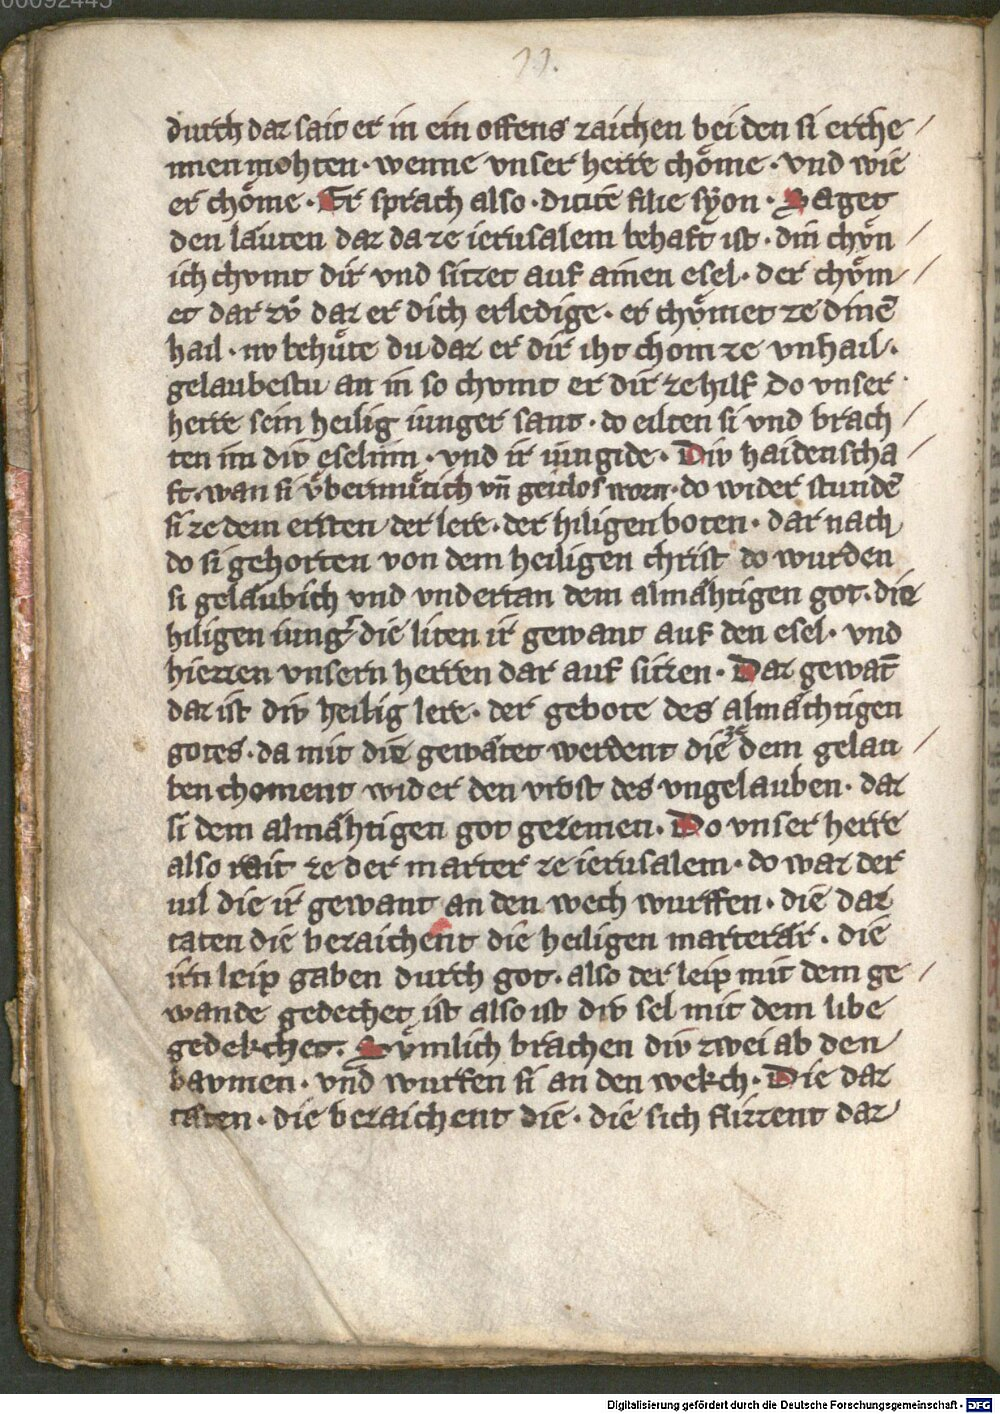 00092445
11.
durch daz sait er in ein offens zaichen bei den si erche /
nnen mohten · wenne vnser herre choͤme · vnd wie
er choͤme · Er sprach also · dicite filie sẏon · Saget
den laͤuten daz da ze ierusalem behaft ist · din chvͤn /
ich chvmt dir vnd sitzet auf ainen esel · der chvͤm /
et dar zvͦ daz er dich erledige · er chvͤmet ze dinē
hail · nv behuͤte du daz er dir iht chom ze vnhail ·
gelaubestu an in so chvmt er dir ze hilf Do vnser
herre sein heilig iunger sant · do eilten si vnd brach /
ten im div eselinn · vnd ir iungide · Div haidenscha /
ft · wan si vͤbermuͤtich vn̄ geulos worn · do wider stundē
si ze dem ersten der lere · der hiligen boten · dar nach
do si gehorten von dem heiligen christ do wurden
si gelaͤubich vnd vndertan dem almaͤhtigen got · die
hiligen iung͛ die liten ir gewant auf den esel · vnd
hiezzen vnsern herren dar auf sitzen · Daz gewāt
daz ist div heilig lere · der gebote des almaͤchtigen
gotes · da mit die gewaͤtet werdent die ze dem gelau /
ben choment wider den vrost des vngelauben · daz
si dem almaͤhtigen got gezemen · Do vnser herre
also rait ze der marter ze ierusalem · do waz der
uil die ir gewant an den wech wurffen · die daz
taten die bezaichent die heiligen marteraͤr · die
irn leip gaben durch got · also der leip mit dem ge /
wande gedechet ist also ist div sel mit dem libe
gedekchet. Svͤmlich brachen div zwei ab den
bavmen · vnd wurfen si an den wekch · Die daz
taten · die bezaichent die · die sich flizzent daz
Digitalisierung gefördert durch die Deutsche Forschungsgemeinschaft - DFG